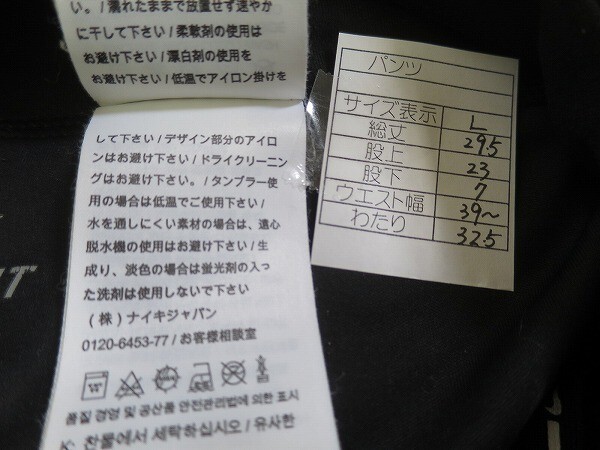 い。/濡れたままで放置せず速やか
に干して下さい/柔軟剤の使用は
お避け下さい/漂白剤の使用を
お避け下さい/低温でアイロン掛けを
して下さい/デザイン部分のアイロ
ンはお避け下さい/ドライクリーニン
グはお避け下さい。/タンブラー使
用の場合は低温でご使用下さい/
水を通しにくい素材の場合は、遠心
脱水機の使用はお避け下さい/生
成り、淡色の場合は蛍光剤の入っ
た洗剤は使用しないで下さい
(株)ナイキジャパン
0120-6453-77/お客様相談室
품질경영 및 공산품 안전관리법에 의한 표시
찬물에서 세탁하십시오/유사한
パンツ
サイズ表示 L
総丈 29.5
股上 23
股下 7
ウエスト幅 39~
わたり 32.5